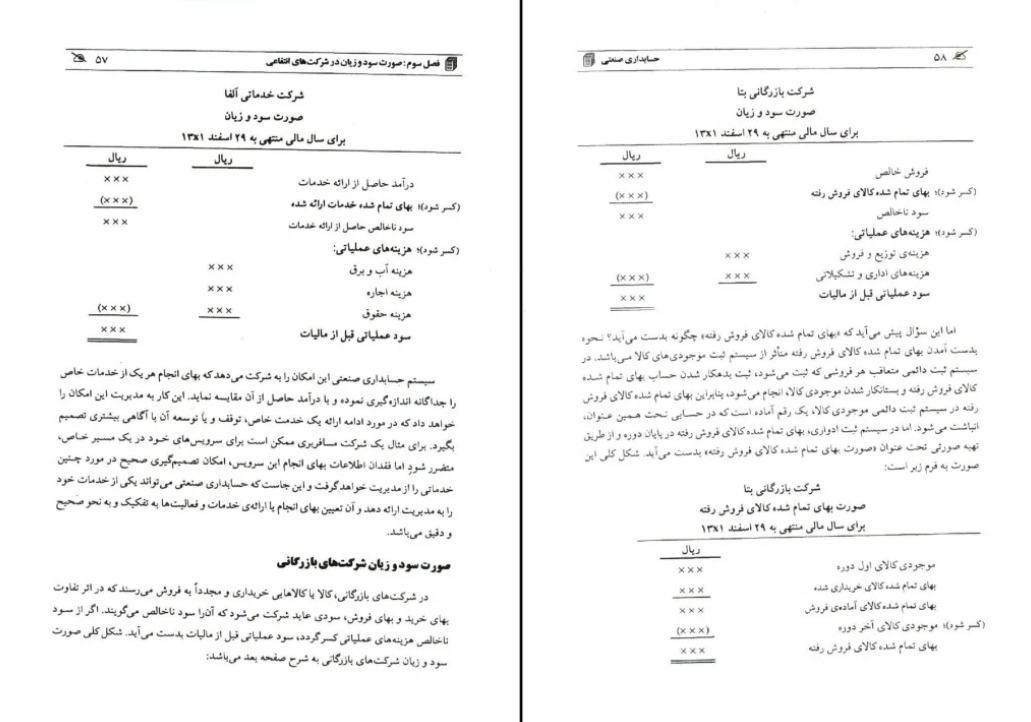 فصل سوم: صورت سود و زیان در شرکت‌های انتفاعی ۵۷
شرکت خدماتی آلفا
صورت سود و زیان
برای سال مالی منتهی به ۲۹ اسفند ۱۳x۱
ریال ریال
درآمد حاصل از ارائه خدمات ×××
(کسر شود)؛ بهای تمام شده خدمات ارائه شده (×××)
سود ناخالص حاصل از ارائه خدمات ×××
(کسر شود)؛ هزینه‌های عملیاتی:
هزینه آب و برق ×××
هزینه اجاره ×××
هزینه حقوق ××× (×××)
سود عملیاتی قبل از مالیات ×××
سیستم حسابداری صنعتی این امکان را به شرکت می‌دهد که بهای انجام هر یک از خدمات خاص
را جداگانه اندازه‌گیری نموده و با درآمد حاصل از آن مقایسه نماید. این کار به مدیریت این امکان را
خواهد داد که در مورد ادامه ارائه یک خدمت خاص، توقف و یا توسعه آن با آگاهی بیشتری تصمیم
بگیرد. برای مثال یک شرکت مسافربری ممکن است برای سرویس‌های خود در یک مسیر خاص،
متضرر شود اما فقدان اطلاعات بهای انجام این سرویس، امکان تصمیم‌گیری صحیح در مورد چنین
خدماتی را از مدیریت خواهد گرفت و این جاست که حسابداری صنعتی می‌تواند یکی از خدمات خود
را به مدیریت ارائه دهد و آن تعیین بهای انجام یا ارائه‌ی خدمات و فعالیت‌ها به تفکیک و به نحو صحیح
و دقیق می‌باشد.
صورت سود و زیان شرکت‌های بازرگانی
در شرکت‌های بازرگانی، کالا یا کالاهایی خریداری و مجدداً به فروش می‌رسند که در اثر تفاوت
بهای خرید و بهای فروش، سودی عاید شرکت می‌شود که آن‌را سود ناخالص می‌گویند. اگر از سود
ناخالص هزینه‌های عملیاتی کسر گردد، سود عملیاتی قبل از مالیات بدست می‌آید. شکل کلی صورت
سود و زیان شرکت‌های بازرگانی به شرح صفحه بعد می‌باشد:
۵۸ حسابداری صنعتی
شرکت بازرگانی بتا
صورت سود و زیان
برای سال مالی منتهی به ۲۹ اسفند ۱۳x۱
ریال ریال
فروش خالص ×××
(کسر شود)؛ بهای تمام شده کالای فروش رفته (×××)
سود ناخالص ×××
(کسر شود)؛ هزینه‌های عملیاتی:
هزینه‌ی توزیع و فروش ×××
هزینه‌های اداری و تشکیلاتی ××× (×××)
سود عملیاتی قبل از مالیات ×××
اما این سؤال پیش می‌آید که «بهای تمام شده کالای فروش رفته» چگونه بدست می‌آید؟ نحوه
بدست آمدن بهای تمام شده کالای فروش رفته متأثر از سیستم ثبت موجودی‌های کالا می‌باشد. در
سیستم ثبت دائمی متعاقب هر فروشی که ثبت می‌شود، ثبت بدهکار شدن حساب بهای تمام شده
کالای فروش رفته و بستانکار شدن موجودی کالا، انجام می‌شود، بنابراین بهای تمام شده کالای فروش
رفته در سیستم ثبت دائمی موجودی کالا، یک رقم آماده است که در حسابی تحت همین عنوان،
انباشت می‌شود. اما در سیستم ثبت ادواری، بهای تمام شده کالای فروش رفته در پایان دوره و از طریق
تهیه صورتی تحت عنوان «صورت بهای تمام شده کالای فروش رفته» بدست می‌آید. شکل کلی این
صورت به فرم زیر است:
شرکت بازرگانی بتا
صورت بهای تمام شده کالای فروش رفته
برای سال مالی منتهی به ۲۹ اسفند ۱۳x۱
ریال
موجودی کالای اول دوره ×××
بهای تمام شده کالای خریداری شده ×××
بهای تمام شده کالای آماده‌ی فروش ×××
(کسر شود)؛ موجودی کالای آخر دوره (×××)
بهای تمام شده کالای فروش رفته ×××